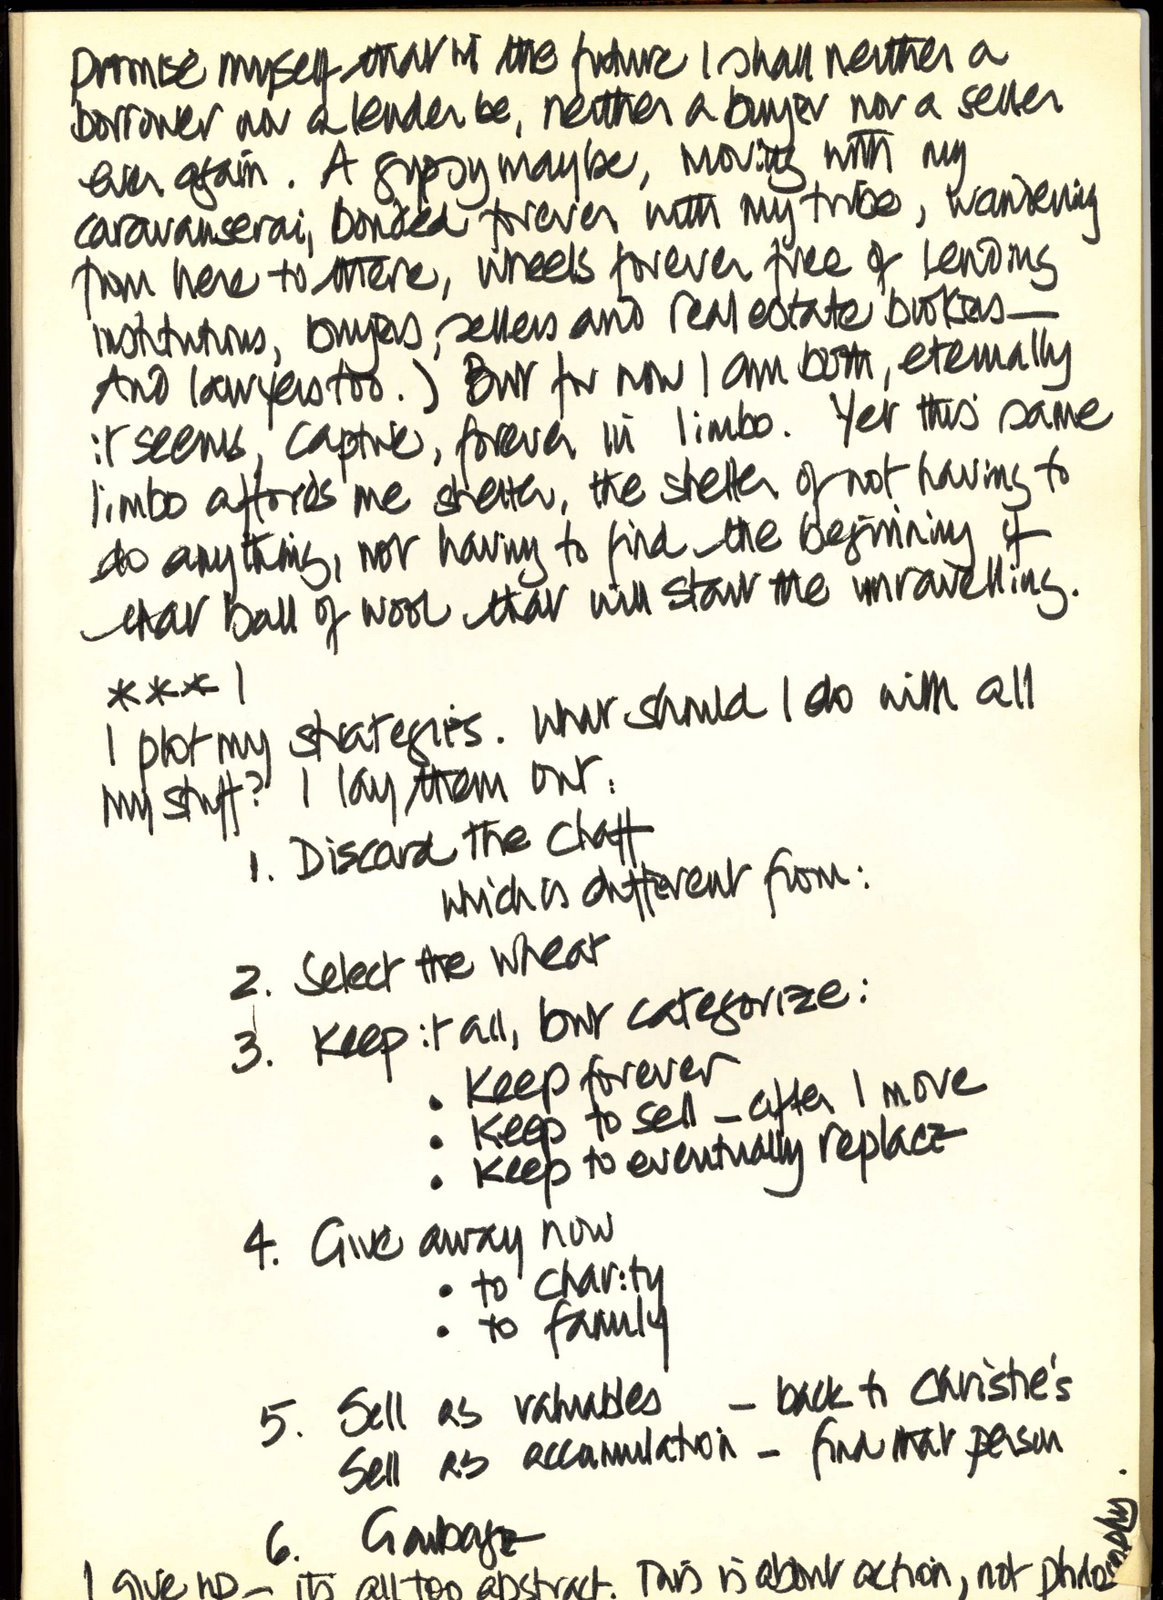 promise myself that in the future I shall neither a
borrower nor a lender be, neither a buyer nor a seller
ever again. A gypsy maybe, moving with my
caravanserai, bonded forever with my tribe, wandering
from here to there, wheels forever free of lending
institutions, buyers, sellers and real estate brokers—
And lawyers too.) But for now I am both, eternally
it seems, captive, forever in limbo. Yet this same
limbo affords me shelter, the shelter of not having to
do anything, not having to find the beginning of
that ball of wool that will start the unravelling.
*** |
I plot my strategies. What should I do with all
my stuff? I lay them out:
1. Discard the chaff
which is different from:
2. Select the wheat
3. Keep it all, but categorize:
• Keep forever
• Keep to sell – after I move
• Keep to eventually replace
4. Give away now
• to charity
• to family
5. Sell as valuables – back to Christie's
Sell as accumulation – find that person
6. Garbage
I give up – its all too abstract. This is about action, not philosophy.